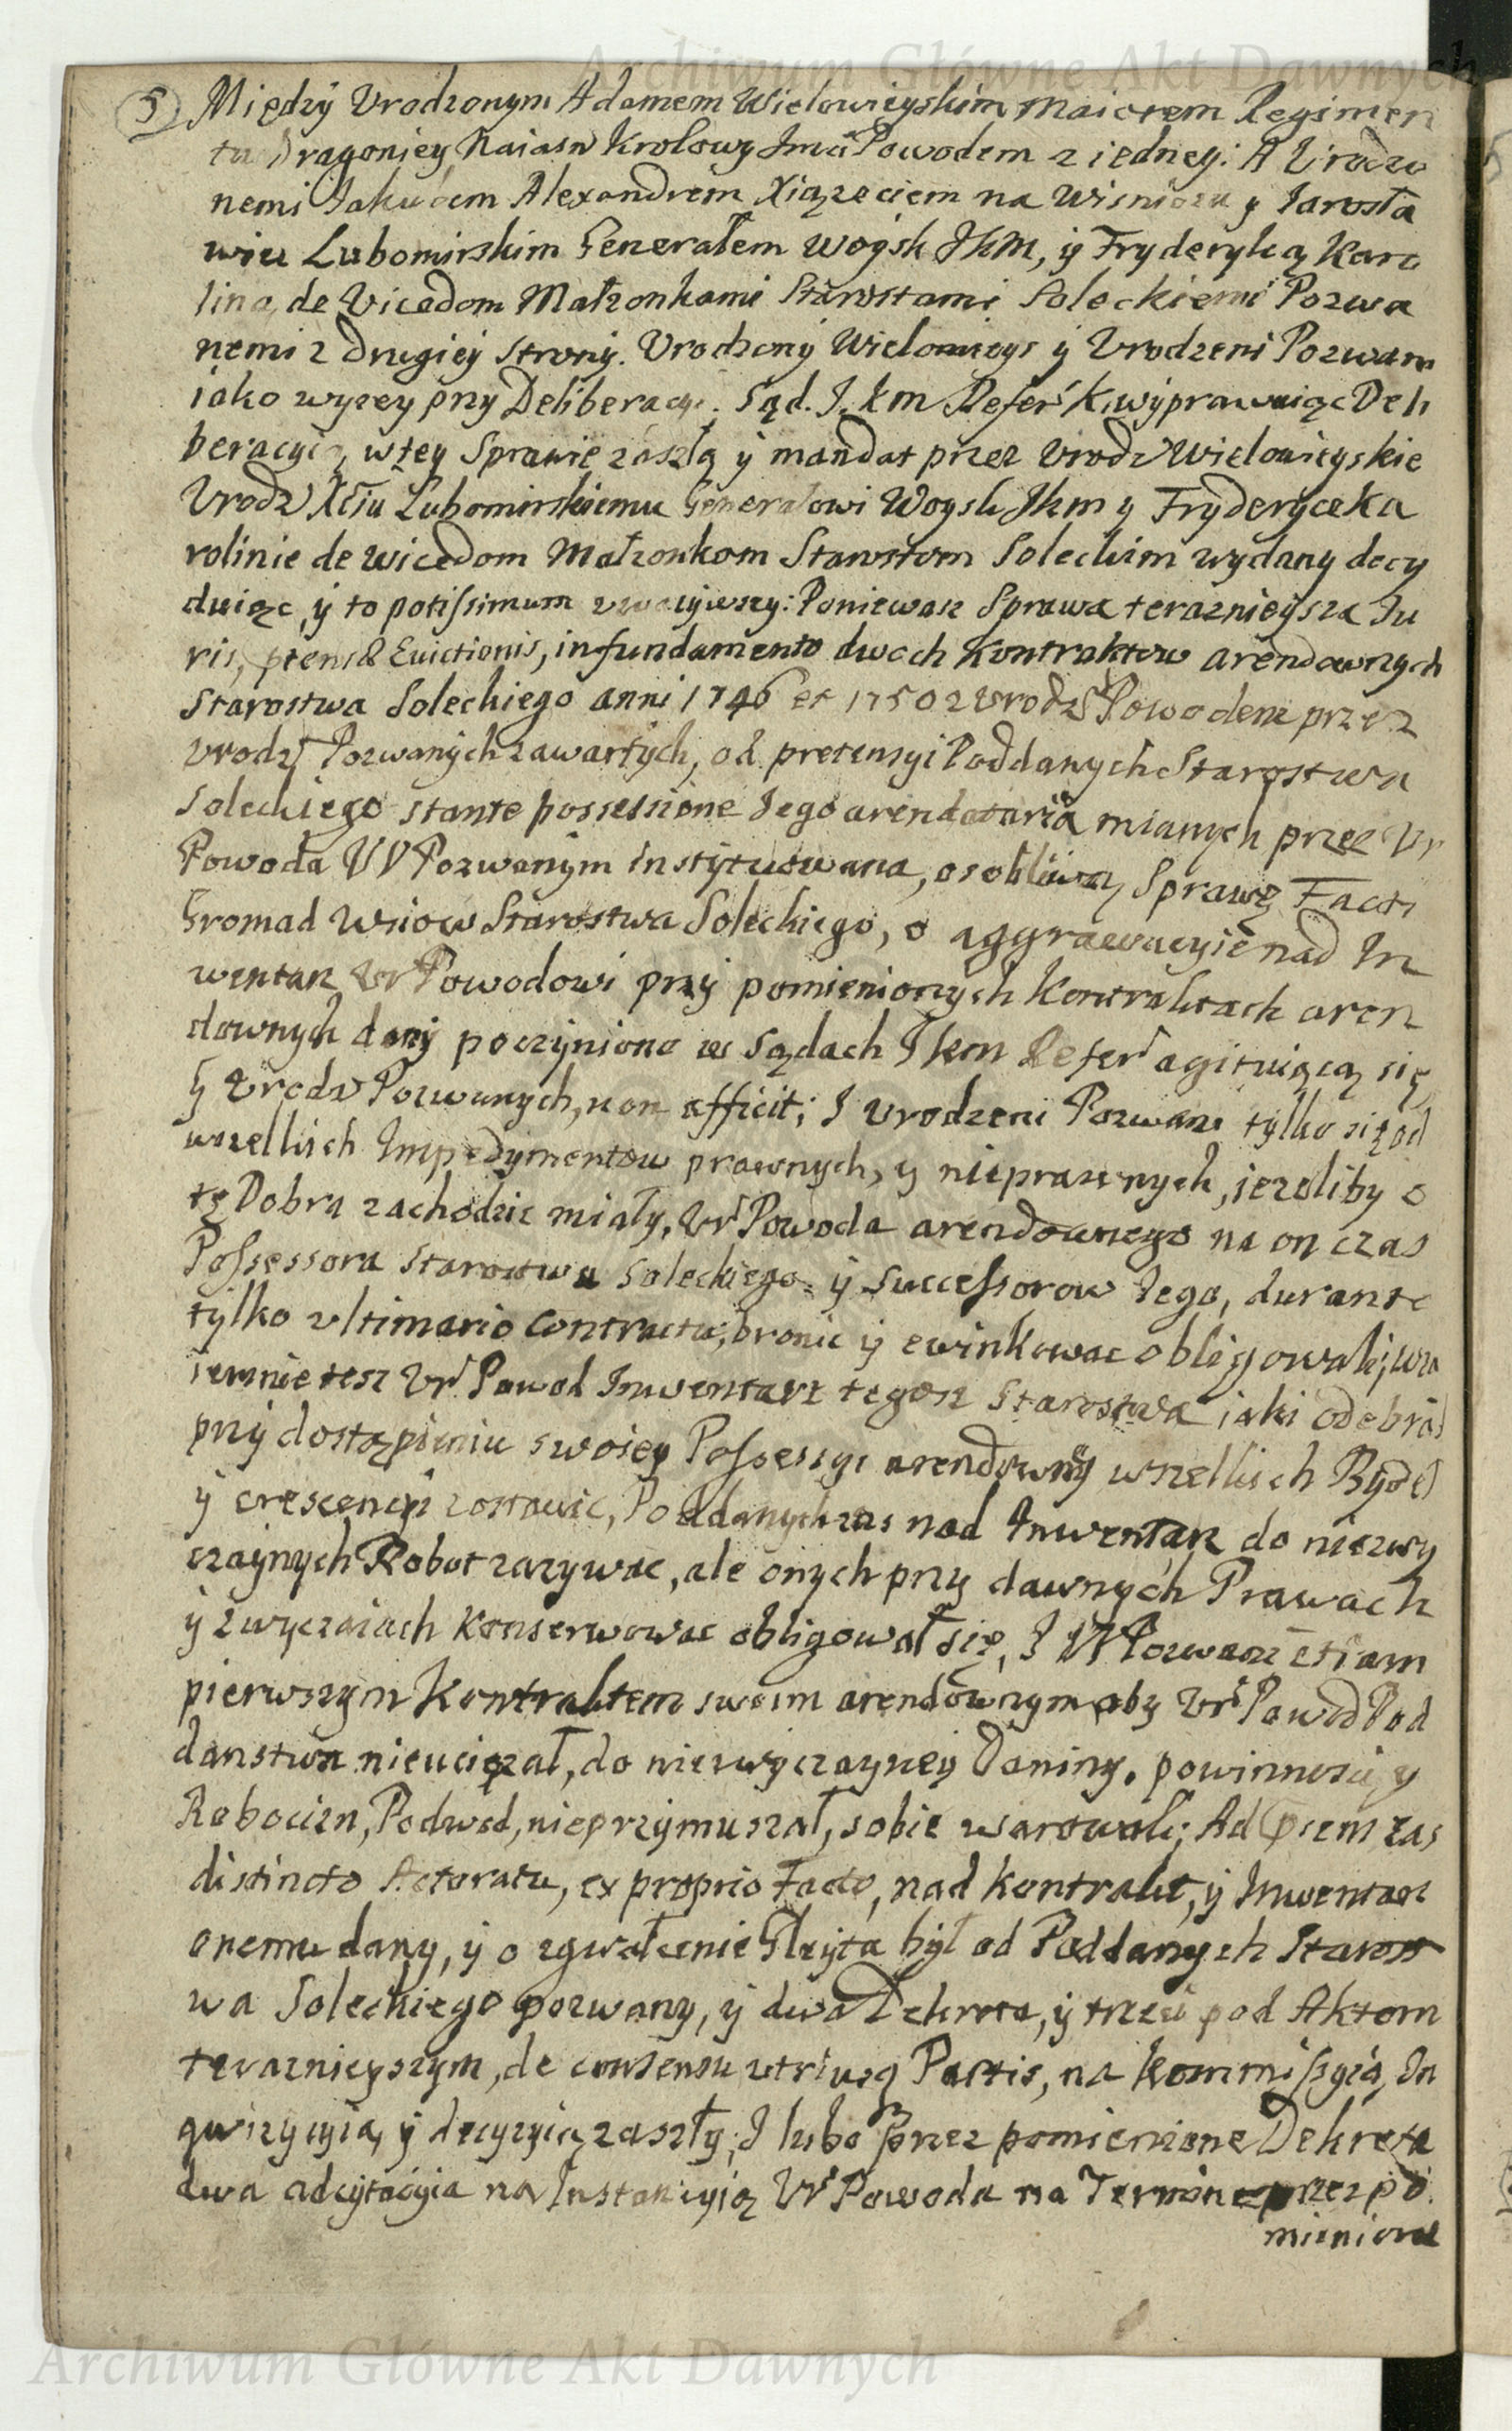 Archiwum Główne Akt Dawnych
5 Między Vrodzonym Adamem Wielowieyskim Maiorem Regimen
tu Dragoniey Naiasn Krolowy Jmci Powodem z iedney: A Vrodzo
nemi Jakubem Alexandrem Xiązęciem na Wisniczu y Jarosła
wiu Lubomirskim Generałem Woysk JKM, ÿ Fryderyką Karo
liną de Vicedom Małzonkami Starostami Soleckiemi Pozwa
nemi z drugiey Strony. Vrodzony Wielowieys ÿ Vrodzeni Pozwani
iako wyzey przy Deliberacyi. Sąd. J. K m Refer K. wyprawuiąc Deli
beracyią w tey Sprawie zaszłą y mandat przez Vrodz Wielowieyskie
Vrodz Xciu Lubomirskiemu Generałowi Woysk Jkm y Fryderyce Ka
rolinie de Wicedom Małzonkom Starostom Soleckim wydany decy
duiąc, ÿ to potissimum uwazywszy: Poniewasz Sprawa teraznieysza Ju
ris, ptens& Evictionis, in fundamento dwoch Kontraktow arendownych
Starostwa Soleckiego anni 1746 et 1750 z Vrodz Powodem przez
Vrodz Pozwanych zawartych, od pretensyi Poddanych Starostwa
Soleckiego stante possessione Jego arendataria mianych przez Vr
Powoda VV Pozwanym instytuowana, osobliwą Sprawę Facti
Gromad Wsiow Starostwa Soleckiego, o aggrawacyie nad In
wentarz Vr Powodowi przy pomienionych Kontraktach aren
downych dany poczynione w Sądach J km Refer agituiącą się
y Vrodz Pozwanych, non afficit; J Vrodzeni Pozwani tylko się od
wszelkich Impedymentow prawnych, y nieprawnych, iezeliby o
te Dobra zachodzic miały, Vr Powoda arendownego na on czas
Possessora Starostwa Soleckiego ÿ Successorow Jego, durante
tylko ultimario Contractu, bronic ÿ ewinkowac obligowali; wza
iemnie tesz Vr Powod Inwentarz tegosz Starostwa iaki odebrał
przy dostąpieniu swoiey Possessyi arendowny wszelkich Bydeł
ÿ crescencyi zostawic, Poddanych zas nad Inwentarz do niezwy
czaynych Robot zazywac, ale onych przy dawnych Prawach
ÿ zwyczaiach konserwowac obligował się, J VV Pozwani etiam
pierwszym Kontraktem swoim arendownym aby Vr Powod Pod
danstwa nieuciązał, do niezwyczayney Daniny, powinnosci y
Robocizn, Podwod, nieprzymuszał, sobie warowali; Ad Psem zas
distincto Actoratu, ex proprio Facto, nad Kontrakt, ÿ Inwentarz
onemu dany, ÿ o zgwałcenie Gleytu był od Poddanych Starost
wa Soleckiego pozwany, ÿ dwa Dekreta, ÿ trzeci pod Aktem
teraznieyszym, de consensu utriusq Partis, na Kommissyią, In
qwizycyią, ÿ decyzyią zaszły; J lubo przez pomienione Dekreta
dwa adcytacyia na Instancyią Vr Powoda na Termine przez po
mienione
Archiwum Główne Akt Dawnych